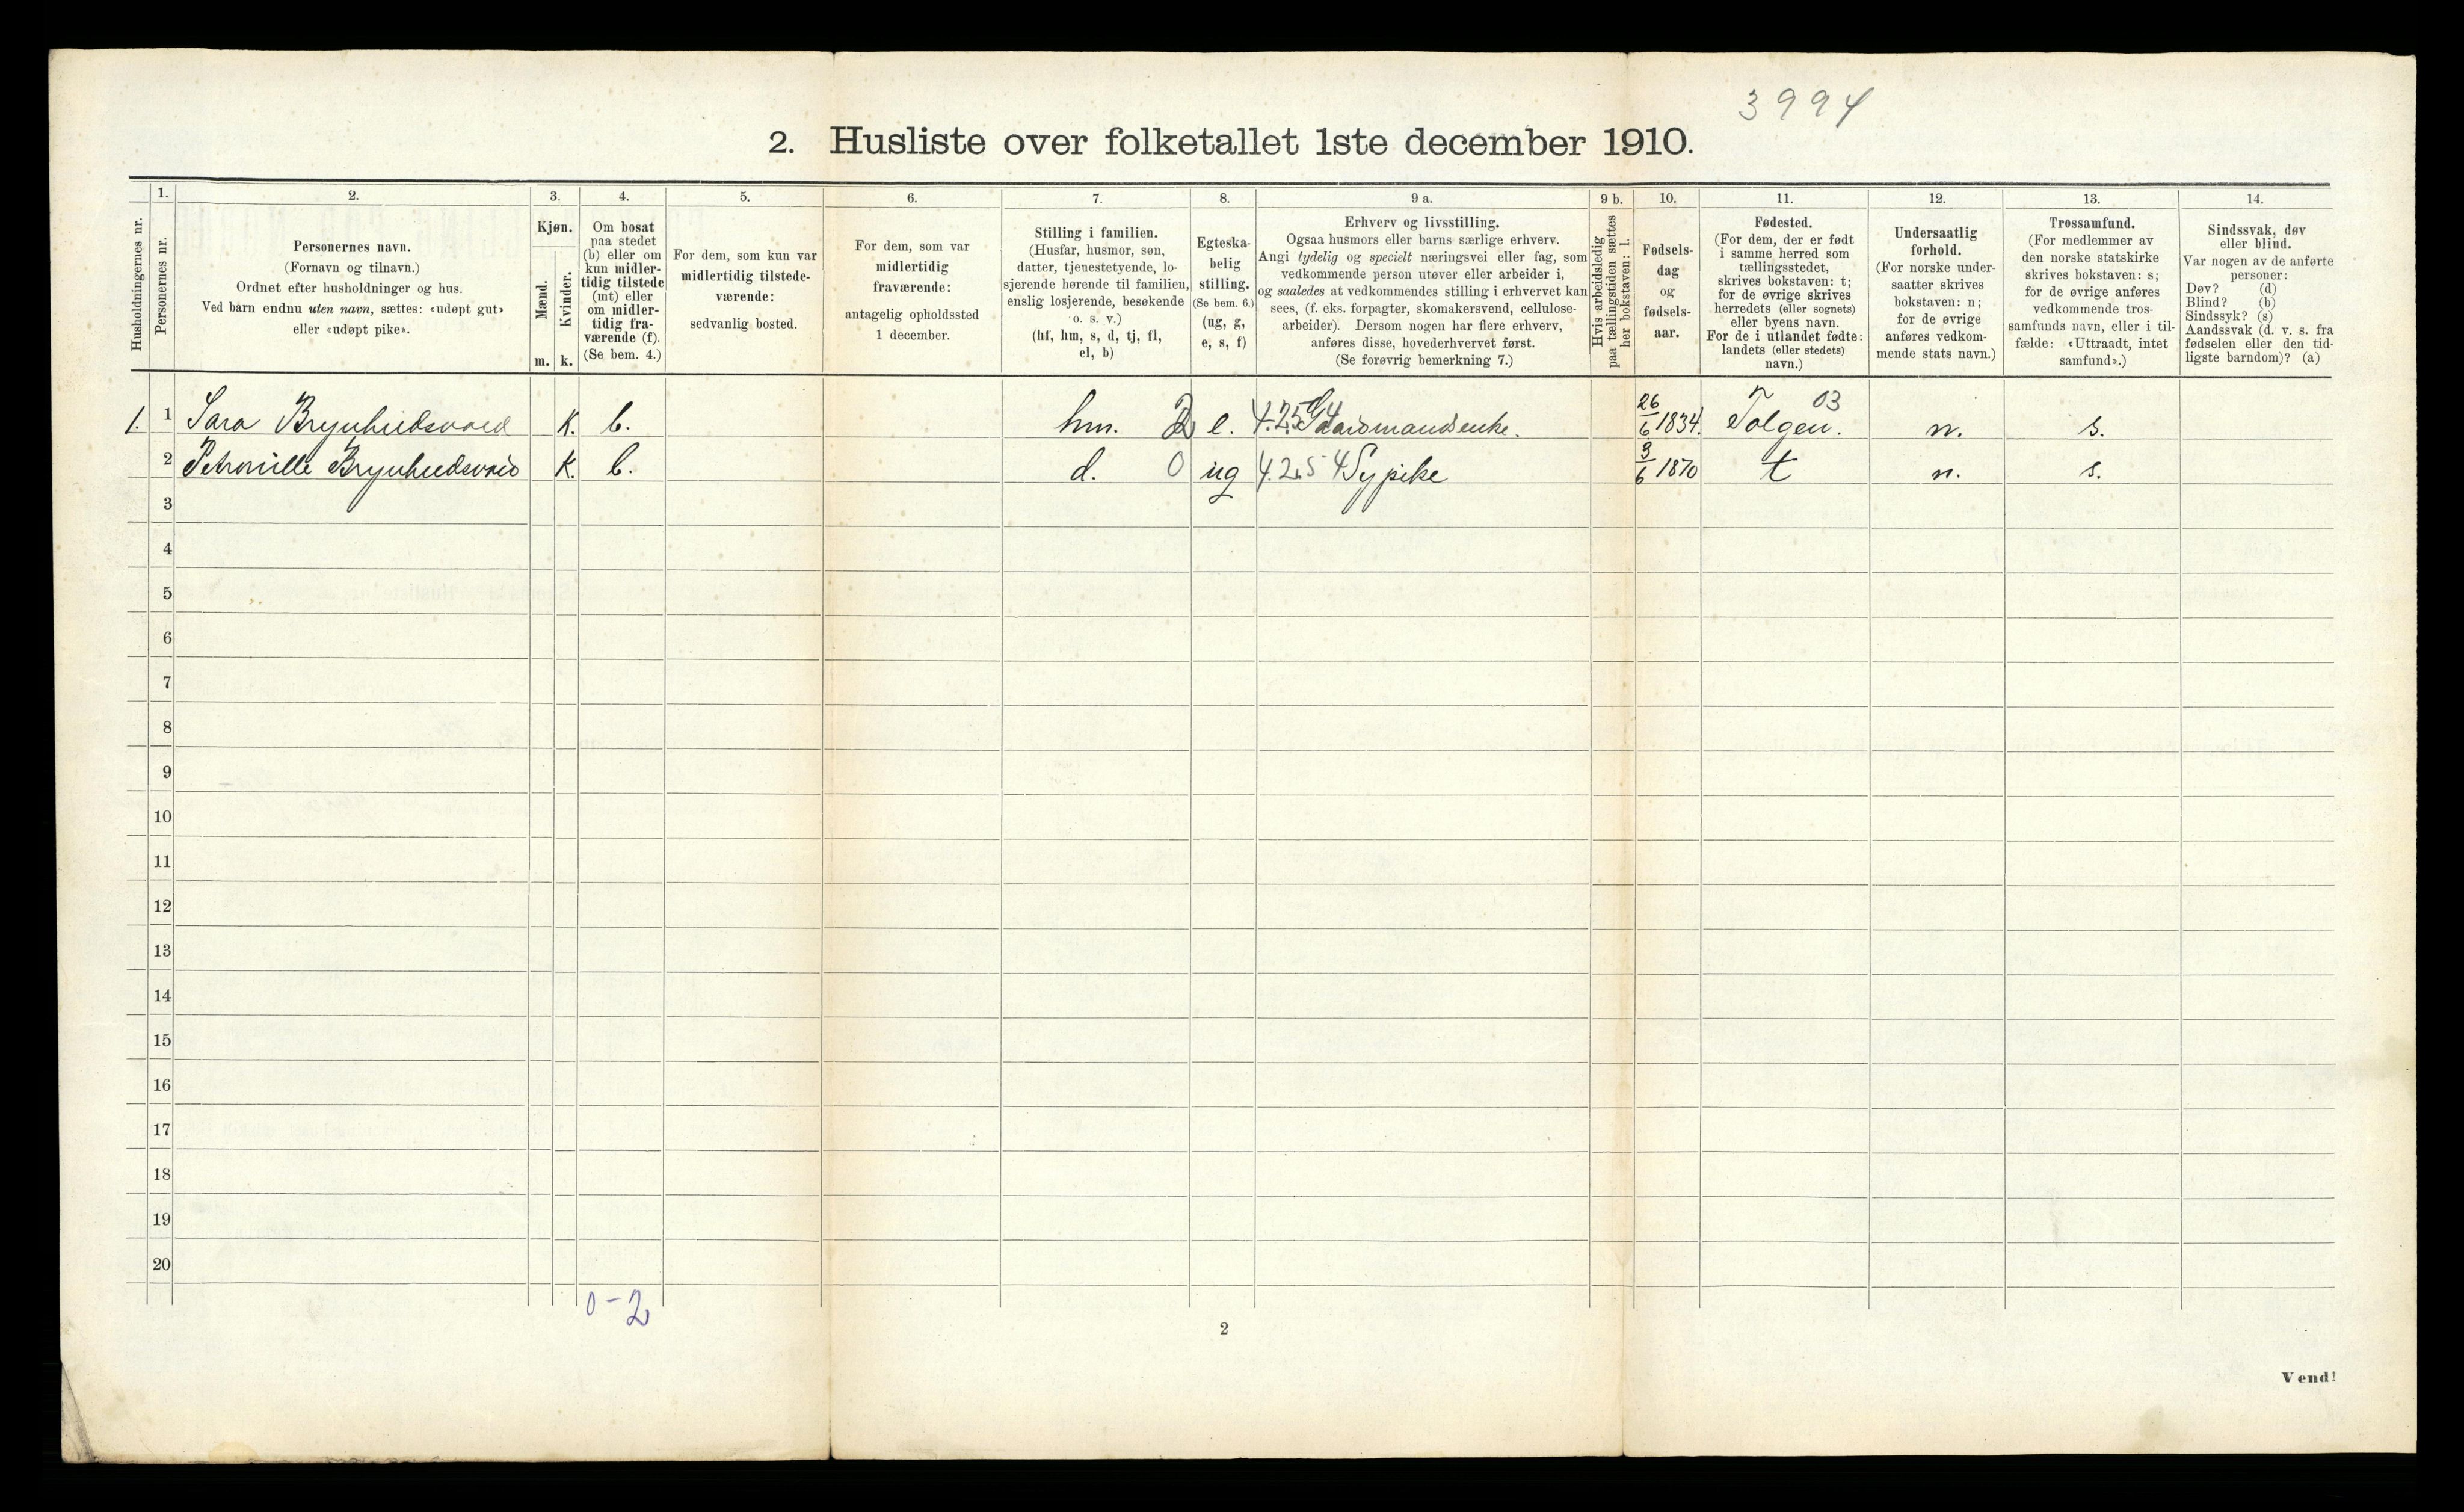 3994
2. Husliste over folketallet 1ste december 1910.
Husholdningernes nr.
1.
Personernes nr.
2.
Personernes navn.
(Fornavn og tilnavn.)
Ordnet efter husholdninger og hus.
Ved barn endnu uten navn, sættes: «udøpt gut»
eller «udøpt pike».
3.
Kjøn.
Mænd.
Kvinder.
m. k.
4.
Om bosat
paa stedet
(b) eller om
kun midler-
tidig tilstede
(mt) eller
om midler-
tidig fra-
værende (f).
(Se bem. 4.)
5.
For dem, som kun var
midlertidig tilstede-
værende:
sedvanlig bosted.
6.
For dem, som var
midlertidig
fraværende:
antagelig opholdssted
1 december.
7.
Stilling i familien.
(Husfar, husmor, søn,
datter, tjenestetyende, lo-
sjerende hørende til familien,
enslig losjerende, besøkende
o. s. v.)
(hf, hm, s, d, tj, fl,
el, b)
8.
Egteska-
belig
stilling.
(Se bem. 6.)
(ug, g,
e, s, f)
9 a.
Erhverv og livsstilling.
Ogsaa husmors eller barns særlige erhverv.
Angi tydelig og specielt næringsvei eller fag, som
vedkommende person utøver eller arbeider i,
og saaledes at vedkommendes stilling i erhvervet kan
sees, (f. eks. forpagter, skomakersvend, cellulose-
arbeider). Dersom nogen har flere erhverv,
anføres disse, hovederhvervet først.
(Se forøvrig bemerkning 7.)
9 b.
Hvis arbeidsledig
paa tællingstiden sættes
her bokstaven: l.
10.
Fødsels-
dag
og
fødsels-
aar.
11.
Fødested.
(For dem, der er født
i samme herred som
tællingsstedet,
skrives bokstaven: t;
for de øvrige skrives
herredets (eller sognets)
eller byens navn.
For de i utlandet fødte:
landets (eller stedets)
navn.)
12.
Undersaatlig
forhold.
(For norske under-
saatter skrives
bokstaven: n;
for de øvrige
anføres vedkom-
mende stats navn.)
13.
Trossamfund.
(For medlemmer av
den norske statskirke
skrives bokstaven: s;
for de øvrige anføres
vedkommende tros-
samfunds navn, eller i til-
fælde: «Uttraadt, intet
samfund».)
14.
Sindssvak, døv
eller blind.
Var nogen av de anførte
personer:
Døv? (d)
Blind? (b)
Sindssyk? (s)
Aandssvak (d. v. s. fra
fødselen eller den tid-
ligste barndom)? (a)
1. 1 Sara K. b. hm. 2 e. 4.25 4 Gaardmandsenke. 26/6 1834. Tolgen. 03 n. s.
2 Petronille K. b. d. 0 ug 4.2.5 4 Sypike 3/6 1870 t n. s.
3
4
5
6
7
8
9
10
11
12
13
14
15
16
17
18
19
20
0-2
2
Vend!